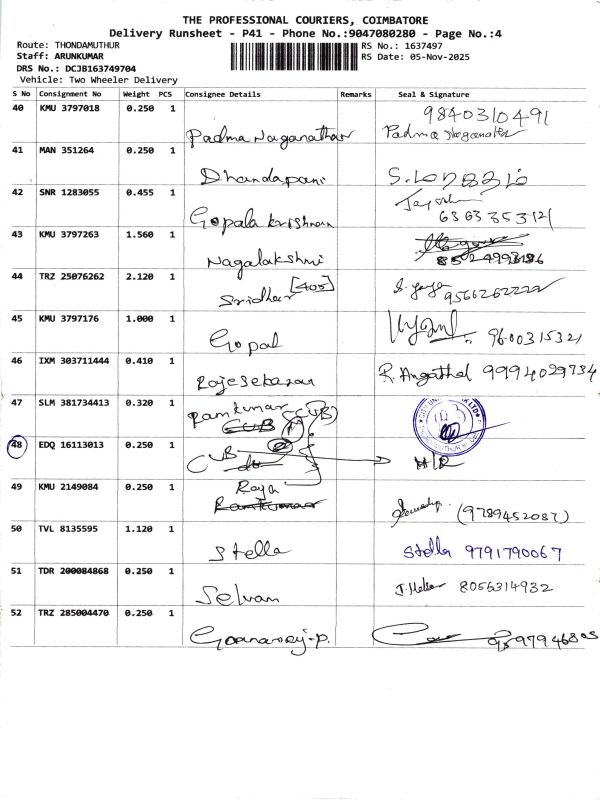 THE PROFESSIONAL COURIERS, COIMBATORE
Delivery Runsheet - P41 - Phone No.:9047080280 - Page No.:4
Route: THONDAMUTHUR
RS No.: 1637497
Staff: ARUNKUMAR
RS Date: 05-Nov-2025
DRS No.: DCJB163749704
Vehicle: Two Wheeler Delivery
S No Consignment No Weight PCS Consignee Details Remarks Seal & Signature
40 KMU 3797018 0.250 1 9840310491
Padma Naganathan Padma Naganathan
41 MAN 351264 0.250 1
Dhandapani
42 SNR 1283055 0.455 1
Gopala Krishnan 6363353121
43 KMU 3797263 1.560 1
Nagalakshmi
44 TRZ 25076262 2.120 1 [405]
Sridhar 9566262222
45 KMU 3797176 1.000 1
Gopal 9600315321
46 IXM 303711444 0.410 1 R. Angathal 9994029734
Rajesekaran
47 SLM 381734413 0.320 1
Ramkumar (CUB)
CUB
48 EDQ 16113013 0.250 1
CUB do H/R
49 KMU 2149084 0.250 1 Raja
Ramkumar (9789452087)
50 TVL 8135595 1.120 1
Stella Stella 9791790067
51 TDR 200084868 0.250 1 8056314932
Selvam
52 TRZ 285004470 0.250 1